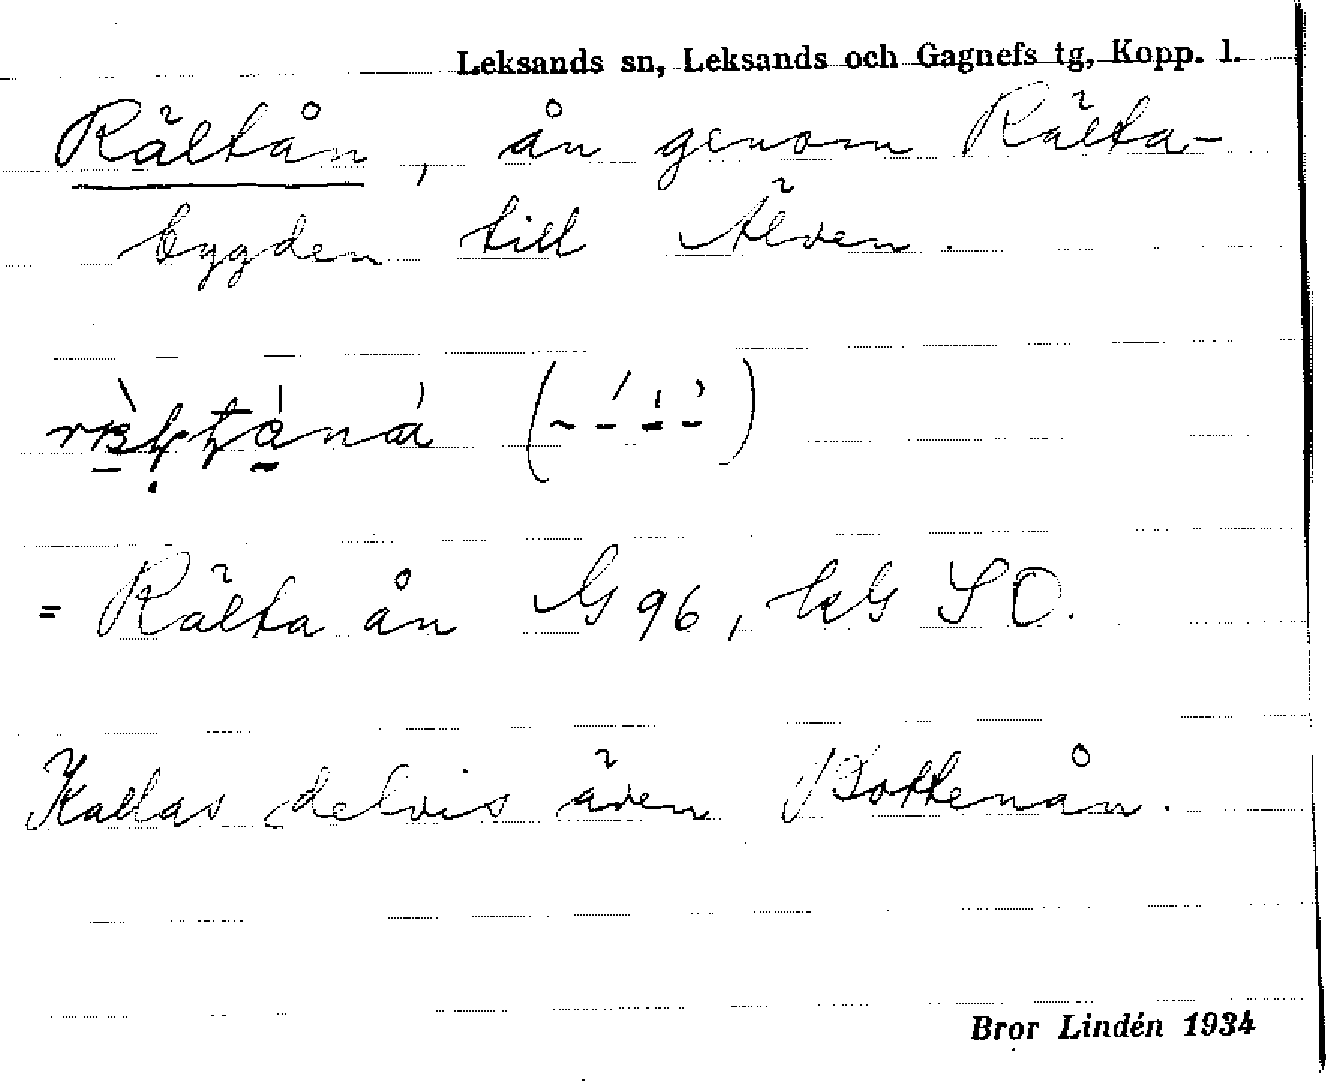 Leksands sn, Leksands och Gagnefs tg, Kopp. l.
Rältån, ån genom Rälta-
bygden till Älven.
= Rälta ån G 96, SO.
Kallas delvis även Bottenån.
Bror Lindén 1934